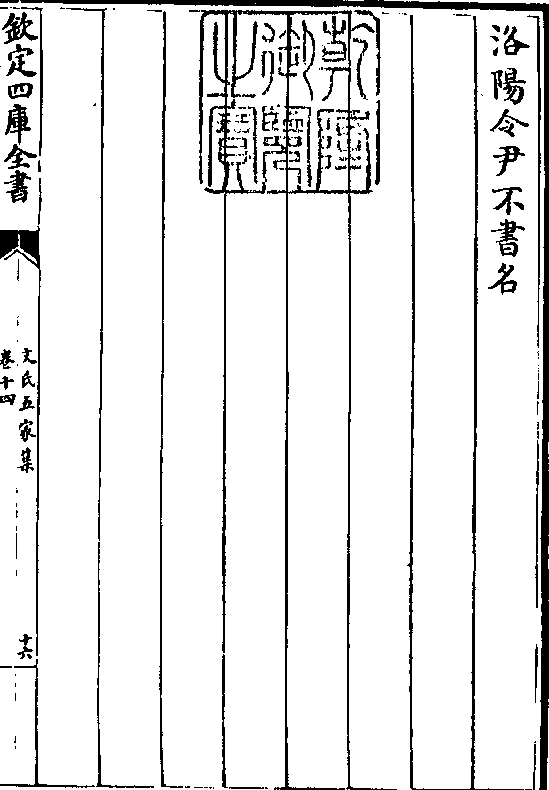 洛陽令尹不書名
乾隆
御覽
之寶
欽定四庫全書
文氏五家集
卷十四
十六